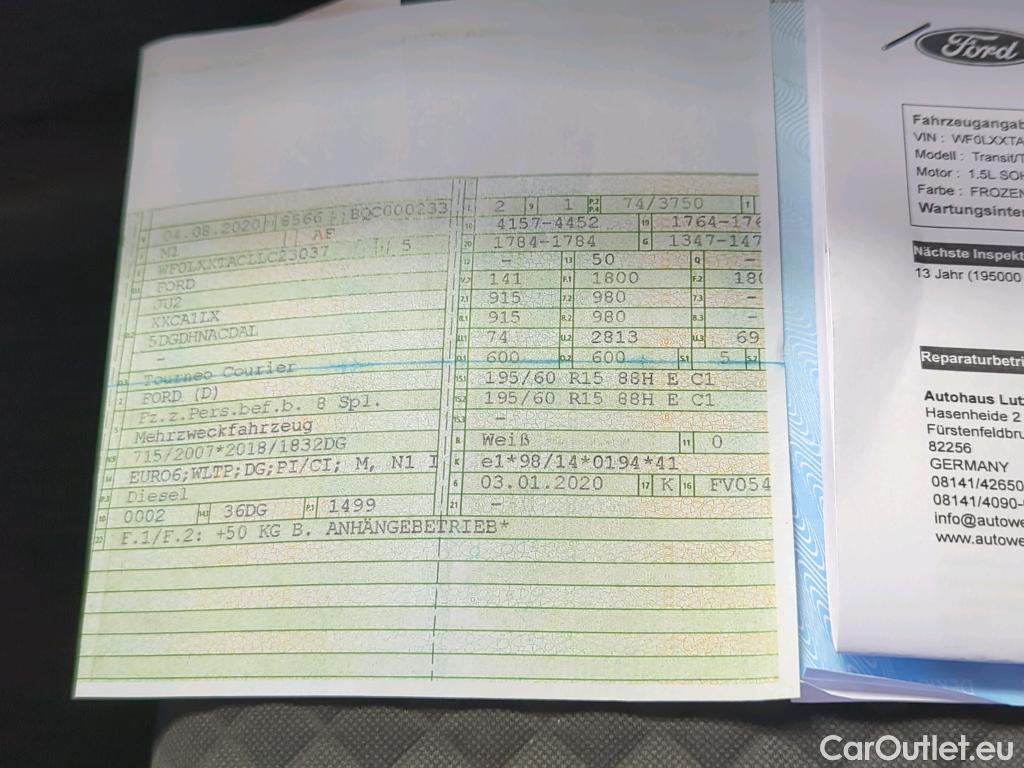 B 04.08.2020 8566 BQC000233
M1 AF
WF0LXXTACLLC23037 5
FORD
JU2
KXCA1LX
5DGDHNACDAL
-
Tourneo Courier
FORD (D)
Fz.z.Pers.bef.b. 8 Spl.
Mehrzweckfahrzeug
715/2007*2018/1832DG
EURO6;WLTP;DG;PI/CI; M, N1 I
Diesel
0002 36DG P.1 1499
22 F.1/F.2: +50 KG B. ANHÄNGEBETRIEB*
L 2 9 1 P.2 P.4 74/3750 T
18 4157-4452 19 1764-176
20 1784-1784 G 1347-147
12 - 13 50 Q -
V.7 141 F.1 1800 F.2 180
7.1 915 7.2 980 7.3 -
8.1 915 8.2 980 8.3 -
U.1 74 U.2 2813 U.3 69
O.1 600 O.2 600 S.1 5 S.2
15.1 195/60 R15 88H E C1
15.2 195/60 R15 88H E C1
15.3 -
R Weiß 11 0
K e1*98/14*0194*41
6 03.01.2020 17 K 16 FV054
21 -
Ford
Fahrzeugangab
VIN : WF0LXXTA
Modell : Transit/T
Motor : 1.5L SOH
Farbe : FROZEN
Wartungsinter
Nächste Inspekt
13 Jahr (195000
Reparaturbetri
Autohaus Lut
Hasenheide 2
Fürstenfeldbru
82256
GERMANY
08141/42650
08141/4090-
info@autowe
www.autowe
CarOutlet.eu